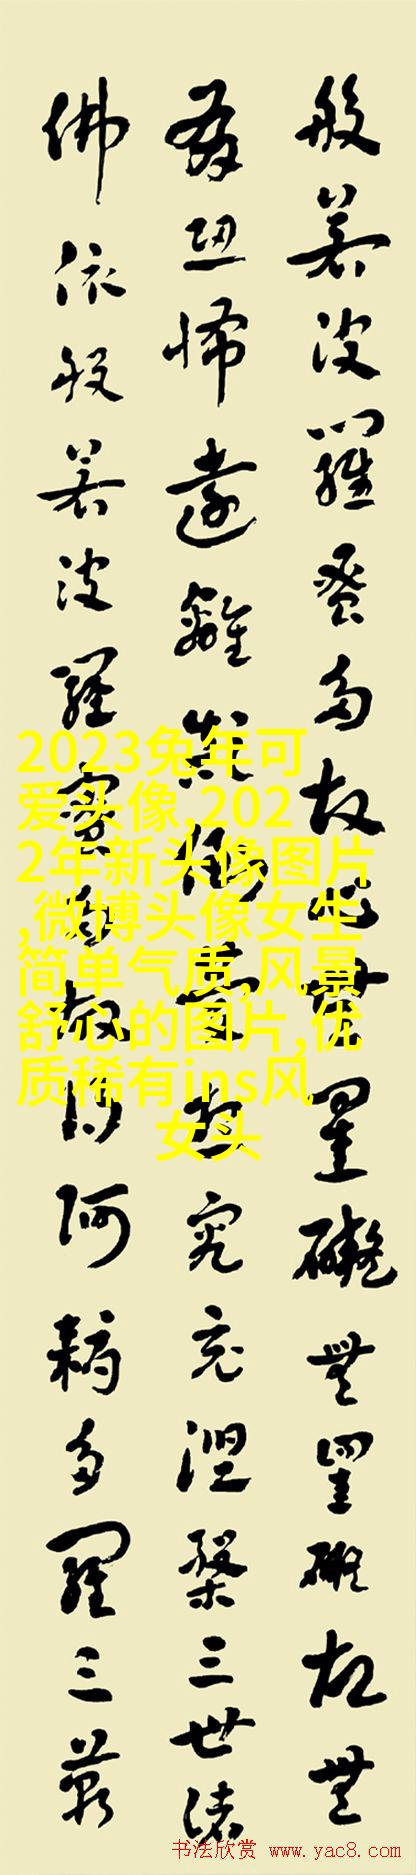 般若波羅蜜多故心無罣礙無罣礙故無
有恐怖遠離顛倒夢想究竟涅槃三世諸
佛依般若波羅蜜多故得阿耨多羅三藐
2023兔年可
爱头像,202
2年新头像图片
,微博头像女生
简单气质,风景
舒心的图片,优
质稀有ins风
女头
书法欣赏 www.yac8.com